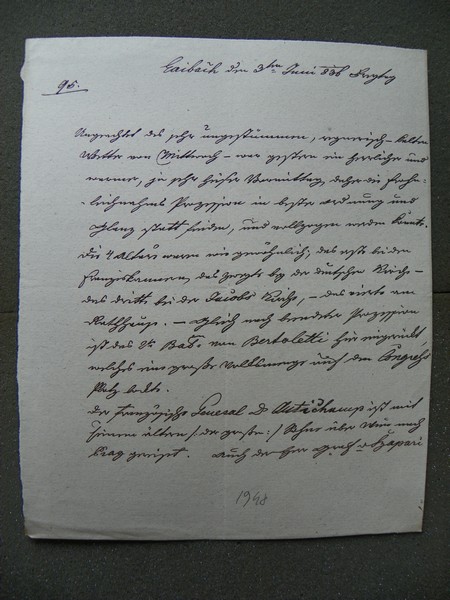 Laibach den 3ten Juni 836 Freytag
95.
Ungeachtet des sehr ungestümmen, regnerisch-kalten
Wetter von Mittwoch – war gestern ein herrlicher und
warmer, ja sehr heißer Vormittag, daher die Frohn-
leichnams Prozession in bester Ordnung und
Glanz statt finden, und vollzogen werden konnte.
Die 4 Altäre waren wie gewöhnlich, das erste bei den
Franziskannern, das zweyte bey der deutschen Kirche –
das dritte bei der Jacobs Kirche, – das vierte am
Rathhause. – Gleich nach beendeter Prozession
ist das 2te Baon von Bertoletti hier eingerückt,
welches eine große Volksmenge auf den Congreß
Platz lockte.
Der Französische General d' Autichamp ist mit
seinem ältern /: der große :/ Sohne über Wien nach
Prag gereist. Auch der Herr Graf v Szapari
1948